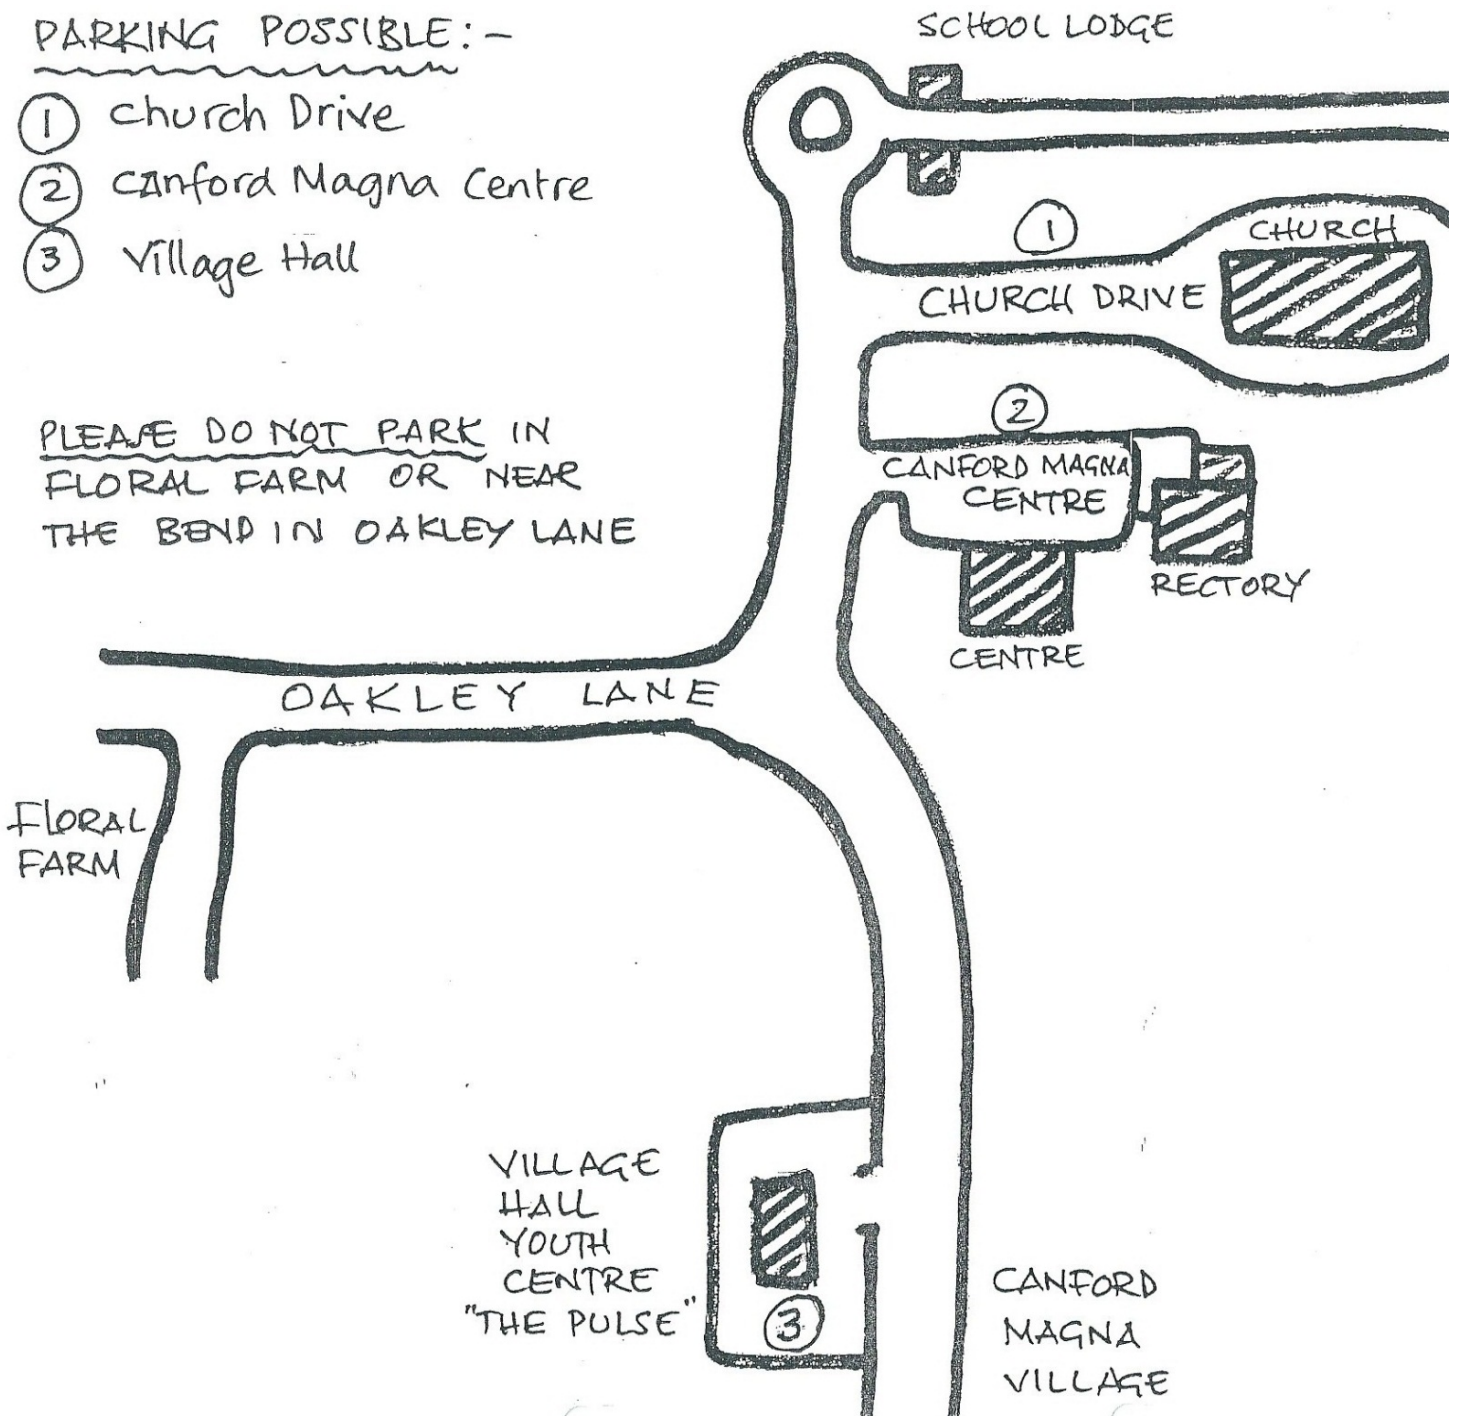 PARKING POSSIBLE:-
1 Church Drive
2 Canford Magna Centre
3 Village Hall
PLEASE DO NOT PARK IN
FLORAL FARM OR NEAR
THE BEND IN OAKLEY LANE
SCHOOL LODGE
1
CHURCH
CHURCH DRIVE
2
CANFORD MAGNA
CENTRE
RECTORY
CENTRE
OAKLEY LANE
FLORAL
FARM
VILLAGE
HALL
YOUTH
CENTRE
"THE PULSE"
3
CANFORD
MAGNA
VILLAGE